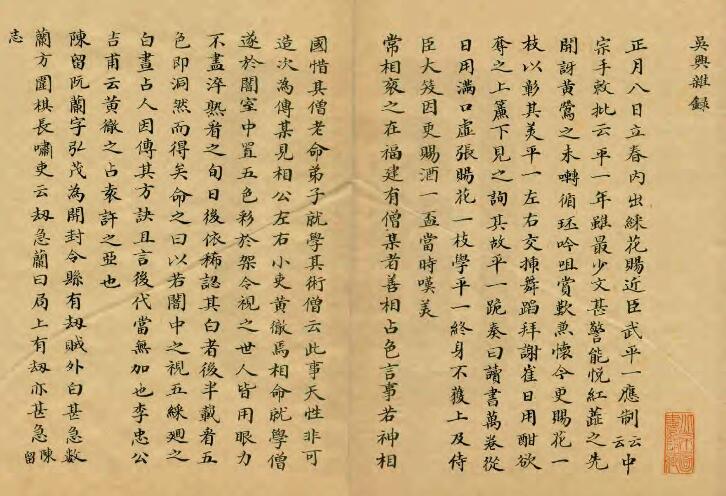 吳興雜録
正月八日立春內出綵花賜近臣武平一應制云云中
宗手敕批云平一年雖最少文甚警能悅紅蘂之先
開訝黃鶯之未囀循環吟咀賞歎兼懷今更賜花一
枝以彰其美平一左右交揷舞蹈拜謝崔日用酣欲
奪之上簾下見之詢其故平一跪奏曰讀書萬卷從
日用滿口虛張賜花一枝學平一終身不獲上及侍
臣大笑因更賜酒一盃當時嘆美
常相衮之在福建有僧某者善相占色言事若神相
國惜其僧老命弟子就學其術僧云此事天性非可
造次為傳某見相公左右小吏黃徹焉相命就學僧
遂於闇室中置五色彩於架令視之世人皆用眼力
不盡淬熟看之旬日後依稀認其白者後半載看五
色即洞然而得矣命之曰以若闇中之視五綵廻之
白晝占人因傳其方訣且言後代當無加也李忠公
吉甫云黃徹之占袁許之亞也
陳留阮蘭字弘茂為開封令縣有刼賊外白甚急數
蘭方圍棋長嘯吏云刼急蘭曰局上有刼亦甚急陳留
志